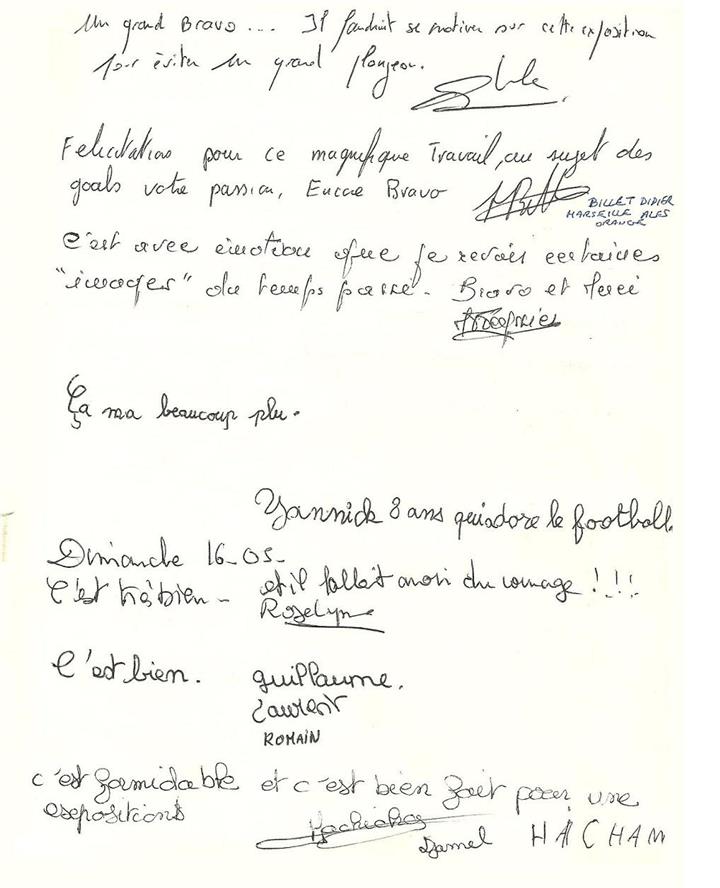 Un grand Bravo ... Il faudrait se motiver sur cette exposition
pour éviter un grand plongeon.
Felicitations pour ce magnifique Travail, au sujet des
goals votre passion, Encore Bravo
BILLET DIDIER
MARSEILLE ALES
ORANGE
C'est avec émotion que je revois certaines
"images" du temps passé - Bravo et Merci
Ça ma beaucoup plu.
Yannick 8 ans qui adore le football.
Dimanche 16-05-
C'est très bien - et il fallait avoir du courage !!!
Roselyne
C'est bien. guillaume.
Laurent
ROMAIN
c'est formidable et c'est bien fait pour une
esepositions
Djamel HACHAM